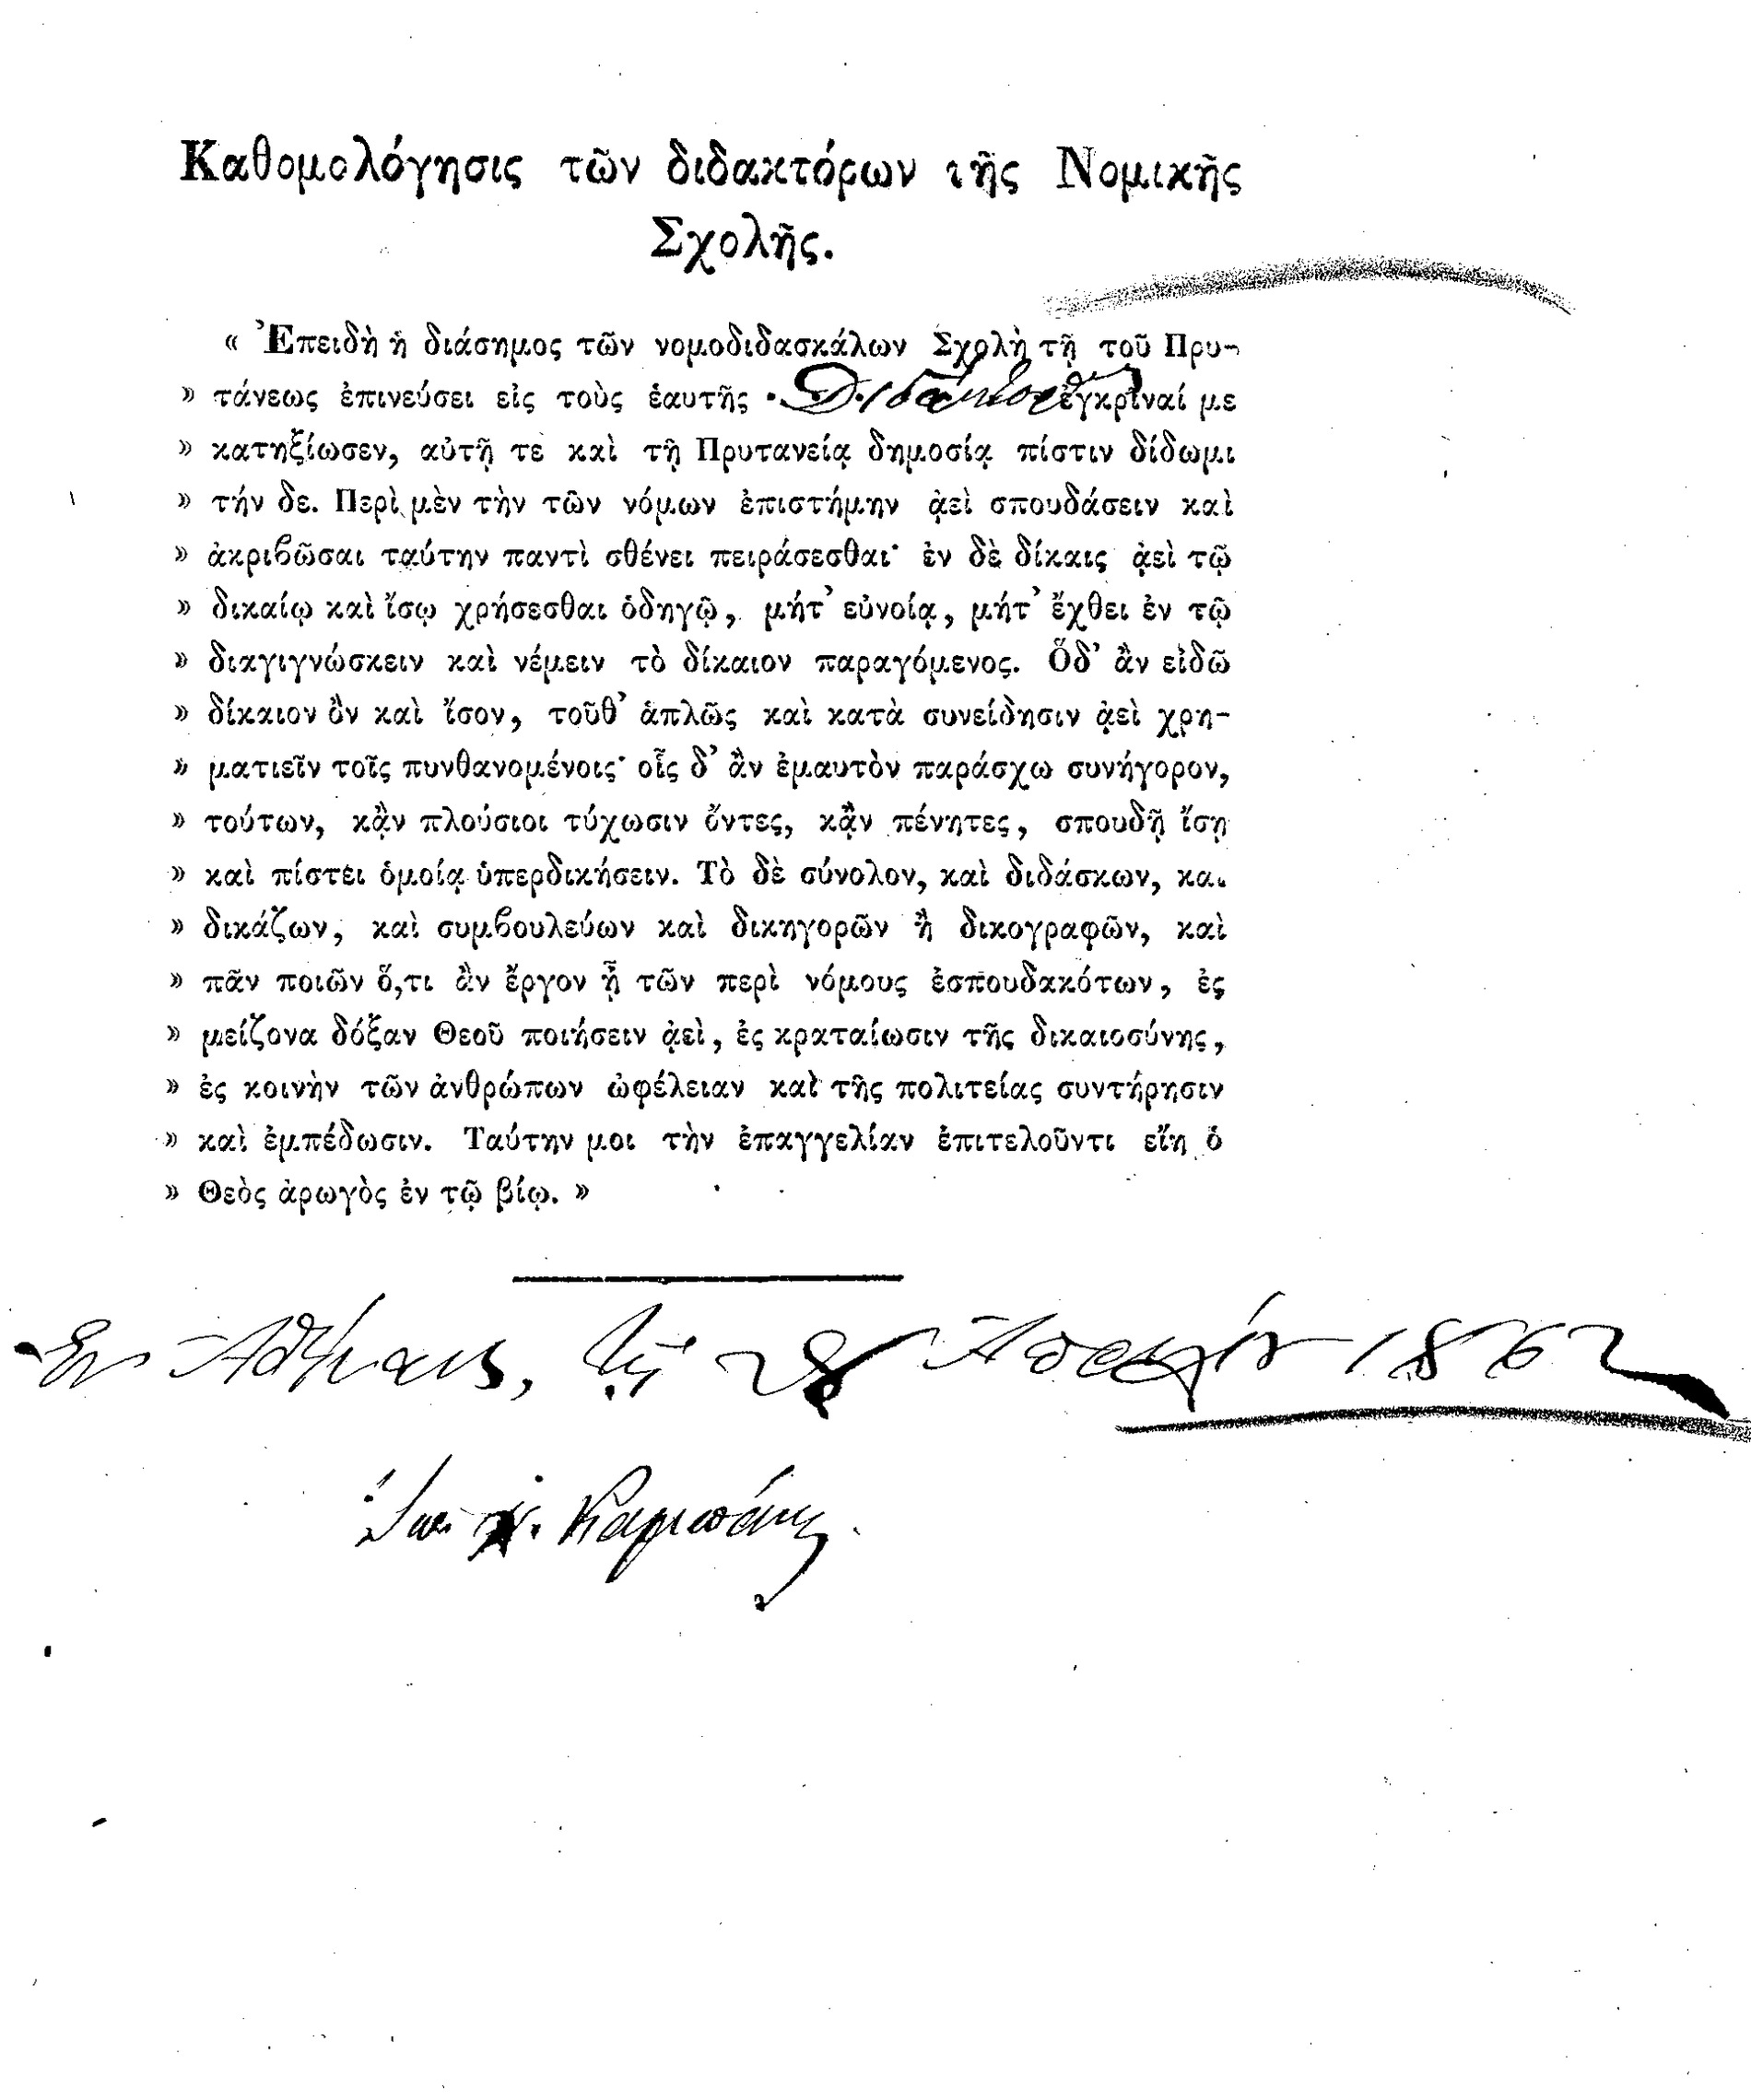 Καθομολόγησις τῶν διδακτόρων τῆς Νομικῆς
Σχολῆς.
« Ἐπειδὴ ἡ διάσημος τῶν νομοδιδασκάλων Σχολὴ τῇ τοῦ Πρυ-
» τάνεως ἐπινεύσει εἰς τοὺς ἑαυτῆς ἐγκρῖναί με
» κατηξίωσεν, αὐτῇ τε καὶ τῇ Πρυτανείᾳ δημοσίᾳ πίστιν δίδωμι
» τήν δε. Περὶ μὲν τὴν τῶν νόμων ἐπιστήμην ᾀεὶ σπουδάσειν καὶ
» ἀκριβῶσαι ταύτην παντὶ σθένει πειράσεσθαι· ἐν δὲ δίκαις ᾀεὶ τῷ
» δικαίῳ καὶ ἴσῳ χρήσεσθαι ὁδηγῷ, μήτ' εὐνοίᾳ, μήτ' ἔχθει ἐν τῷ
» διαγιγνώσκειν καὶ νέμειν τὸ δίκαιον παραγόμενος. Ὃδ' ἂν εἰδῶ
» δίκαιον ὂν καὶ ἴσον, τοῦθ' ἁπλῶς καὶ κατὰ συνείδησιν ᾀεὶ χρη-
» ματιεῖν τοῖς πυνθανομένοις· οἷς δ' ἂν ἐμαυτὸν παράσχω συνήγορον,
» τούτων, κᾂν πλούσιοι τύχωσιν ὄντες, κᾂν πένητες, σπουδῇ ἴσῃ
» καὶ πίστει ὁμοίᾳ ὑπερδικήσειν. Τὸ δὲ σύνολον, καὶ διδάσκων, καὶ
» δικάζων, καὶ συμβουλεύων καὶ δικηγορῶν ἢ δικογραφῶν, καὶ
» πᾶν ποιῶν ὅ,τι ἂν ἔργον ᾖ τῶν περὶ νόμους ἐσπουδακότων, ἐς
» μείζονα δόξαν Θεοῦ ποιήσειν ᾀεὶ, ἐς κραταίωσιν τῆς δικαιοσύνης,
» ἐς κοινὴν τῶν ἀνθρώπων ὠφέλειαν καὶ τῆς πολιτείας συντήρησιν
» καὶ ἐμπέδωσιν. Ταύτην μοι τὴν ἐπαγγελίαν ἐπιτελοῦντι εἴη ὁ
» Θεὸς ἀρωγὸς ἐν τῷ βίῳ. »
Ἐν Ἀθήναις, τῇ 28 Ἀπριλίου 1862
Καμπάνης